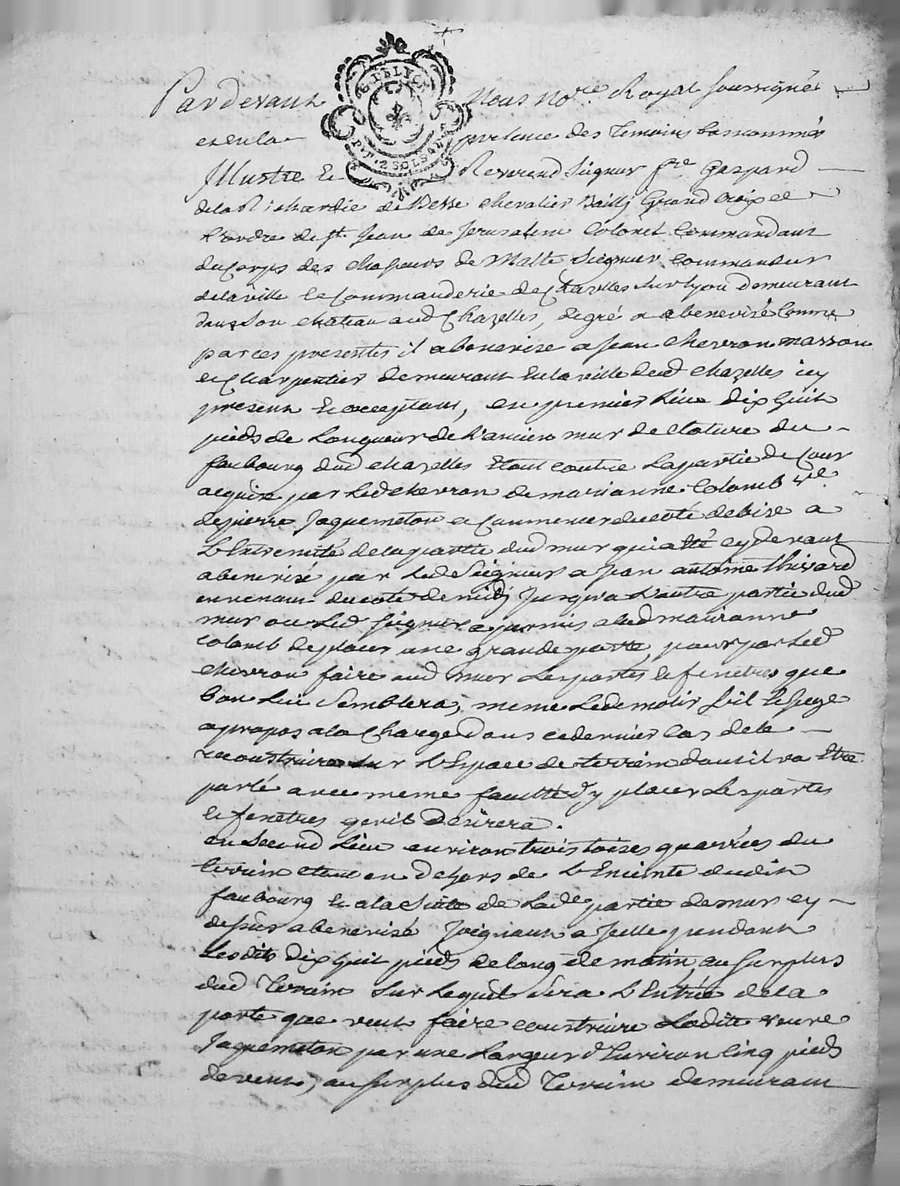 Pardevant Nous No.re Royal soussigné
et en la presence des Temoins bas nommés
Illustre et Reverend Seigneur f.re Gaspard
G. DE LYON
P.P. 2 SOLS
de la Richardie de Besse chevalier Bailly Grand Croix de
L'ordre de St. Jean de Jerusalem Colonel Commandant
du Corps des chasseurs de Malte Seigneur Commandeur
de la ville et Commanderie de Chazelles sur Lyon demeurant
dans son chateau aud Chazelles, de gré a abenevisé comme
par ces presentes il abenevise a Jean Chevron masson
et Charpentier demeurant en la ville dud Chazelles icy
present et acceptant, en premier lieu dix huit
pieds de Longueur de L'ancien mur de cloture du
faubourg dud chazelles etant contre la partie de Cour
acquise par led chevron de marianne Colomb v.ve
de pierre Jaquemeton et Commencer du coté de bise a
L'Extremité de la partie dud mur qui a été cy devant
abenevisé par Led Seigneur a Jean antoine Thizard
en venant du coté de midy Jusqu'a L'autre partie dud
mur ou Led Seigneur a permis a lad marianne
Colomb de placer une grande porte, pour par Led
chevron faire aud mur Les portes et fenetres que
bon Lui Semblera, meme Le demolir s'il Le Juge
apropos a la Charge dans ce dernier Cas de le
reconstruire sur L'Espace de terrein dont il va Etre
parlé avec meme faculté d'y placer Les portes
et fenetres qu'il desirera.
en Second Lieu environ trois toises quarrées du
terrein etant en dehors de L'Enceinte dudit
faubourg et a la Suite de Lad.e partie de mur cy
dessus abenevisé Joignant a Icelle pendant
Les dits dix huit pieds de long de matin au Surplus
dud Terrein Sur Lequel Sera L'Entrée de la
porte que veut faire construire Ladite veuve
Jaquemeton par une Largeur d'Environ Cinq pieds
de vent, au Surplus dud Terrein demeurant